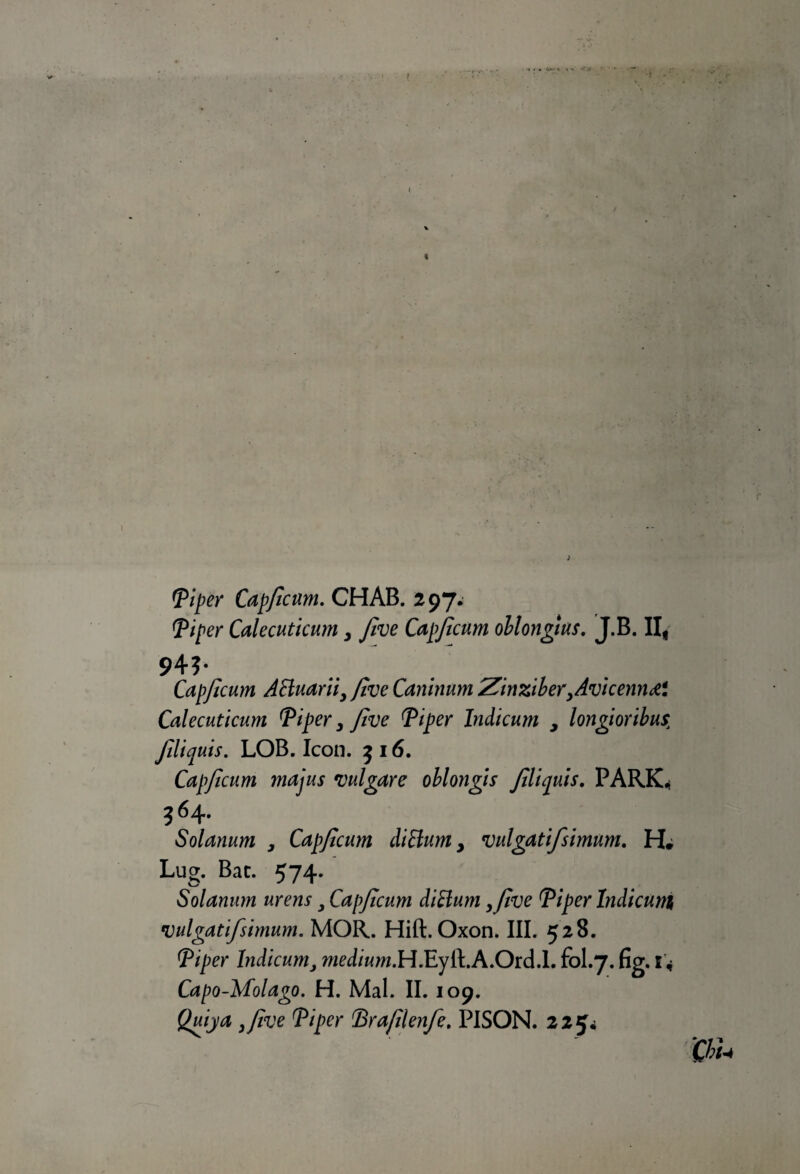 Piper Capſicum. CHAB. 297.
Piper Calecuticum, ſive Capſicum oblongius. J.B. II.
943.
Capſicum Actuarii, ſive Caninum Zinziber, Avicennæ:
Calecuticum Piper, ſive Piper Indicum, longioribus
ſiliquis. LOB. Icon. 316.
Capſicum majus vulgare oblongis ſiliquis. PARK.
364.
Solanum, Capſicum dictum, vulgatiſsimum. H.
Lug. Bat. 574.
Solanum urens, Capſicum dictum, ſive Piper Indicum
vulgatiſsimum. MOR. Hiſt. Oxon. III. 528.
Piper Indicum, medium. H. Eyſt. A. Ord. I. fol. 7. fig. 1.
Capo-Molago. H. Mal. II. 109.
Quiya, ſive Piper Braſilenſe. PISON. 225.
Chi-